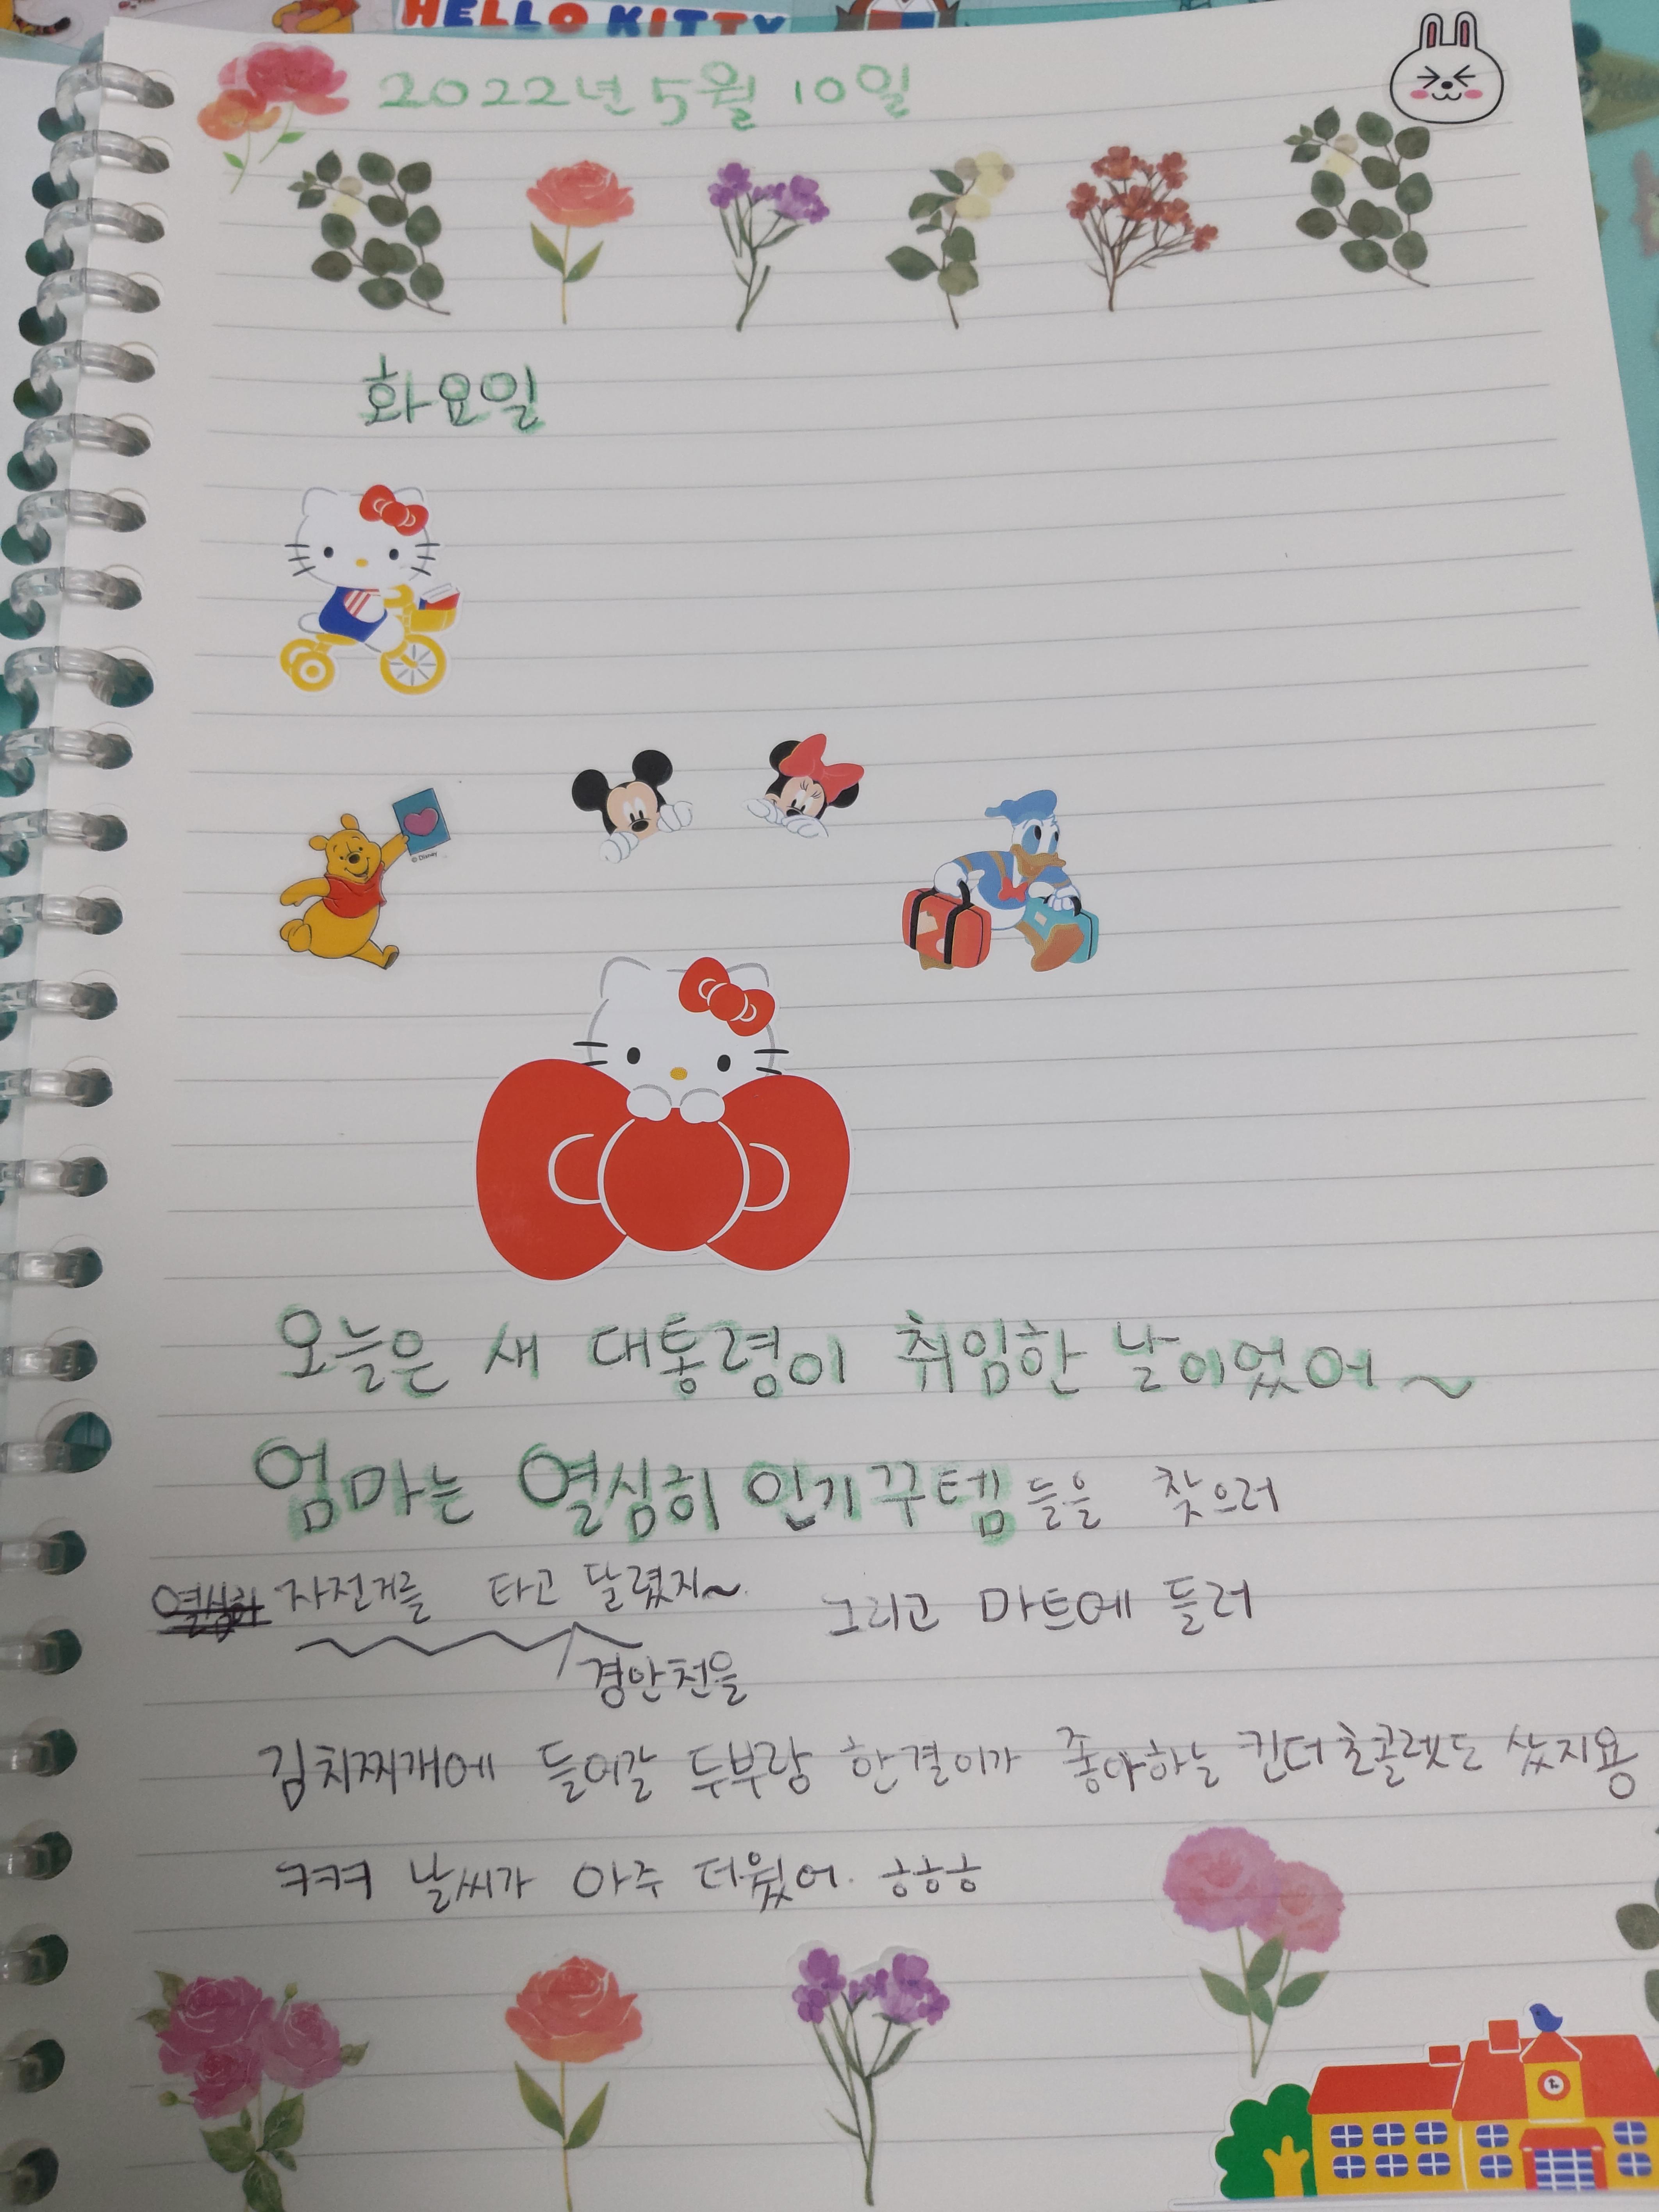 HELLO KITTY
2022년 5월 10일
화요일
© Disney
오늘은 새 대통령이 취임한 날이었어~
엄마는 열심히 인기꾸템들을 찾으러
열심히 자전거를 타고 달렸지~ 그리고 마트에 들러
경안천을
김치찌개에 들어갈 두부랑 한결이가 좋아하는 킨더초콜렛도 샀지용
ㅋㅋㅋ 날씨가 아주 더웠어. ㅎㅎㅎ